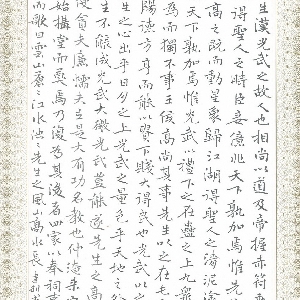 生漢光武之故人也相尚以道及帝握赤符
得聖人之時臣妾億兆天下孰加焉惟先
高之既而動星象歸江湖得聖人之清泥塗
天下孰加焉惟光武以禮下之在蠱之上九眾
為而獨不事王侯高尚其事先生以之在屯
陽德方亨而能以貴下賤大得民也光武以之
生之心出乎日月之上光武之量包乎天地之
生不能成光武大微光武豈能遂先生之高
使貪夫廉懦夫立是大有功名教也仲淹來
始搆堂而奠焉乃復為其後者四家以奉祠事
而歌曰雲山蒼蒼江水泱泱先生之風山高水長